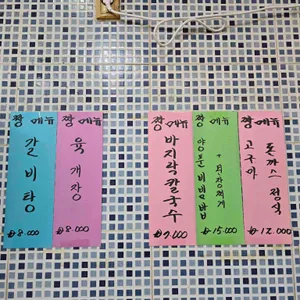 짱 메뉴
갈비탕
₩8.000
짱 메뉴
육개장
₩8.000
짱 메뉴
바지락칼국수
₩7.000
짱 메뉴
양푼비빔밥
+ 된장찌게
₩15.000
짱 메뉴
돈까스 정식
고구마
₩12.000